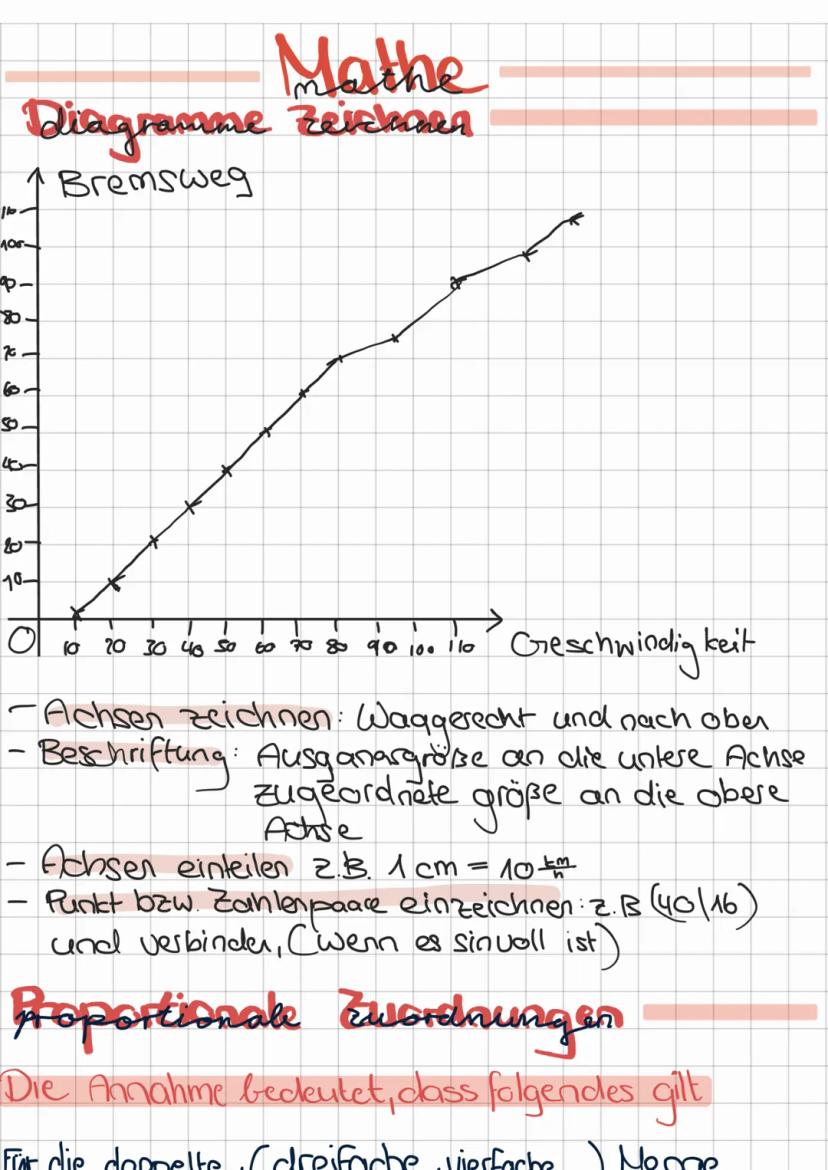 Mathe
mathe
Diagramme Zeichnen
diagramme zeichnen
Bremsweg
110
100
90
80
70
60
50
40
30
20
10
0 10 20 30 40 50 60 70 80 90 100 110 Geschwindigkeit
- Achsen zeichnen: Waagerecht und nach oben
- Beschriftung: Ausgangsgröße an die untere Achse
zugeordnete größe an die obere
Achse
- Achsen einteilen z.B. 1 cm = 10 km/h
- Punkt bzw. Zahlenpaare einzeichnen: z.B (40|16)
und verbinden, (wenn es sinvoll ist)
Proportionale Zuordnungen
proportionale zuordnungen
Die Annahme bedeutet, dass folgendes gilt
Für die doppelte, (dreifache, vierfache...) Menge